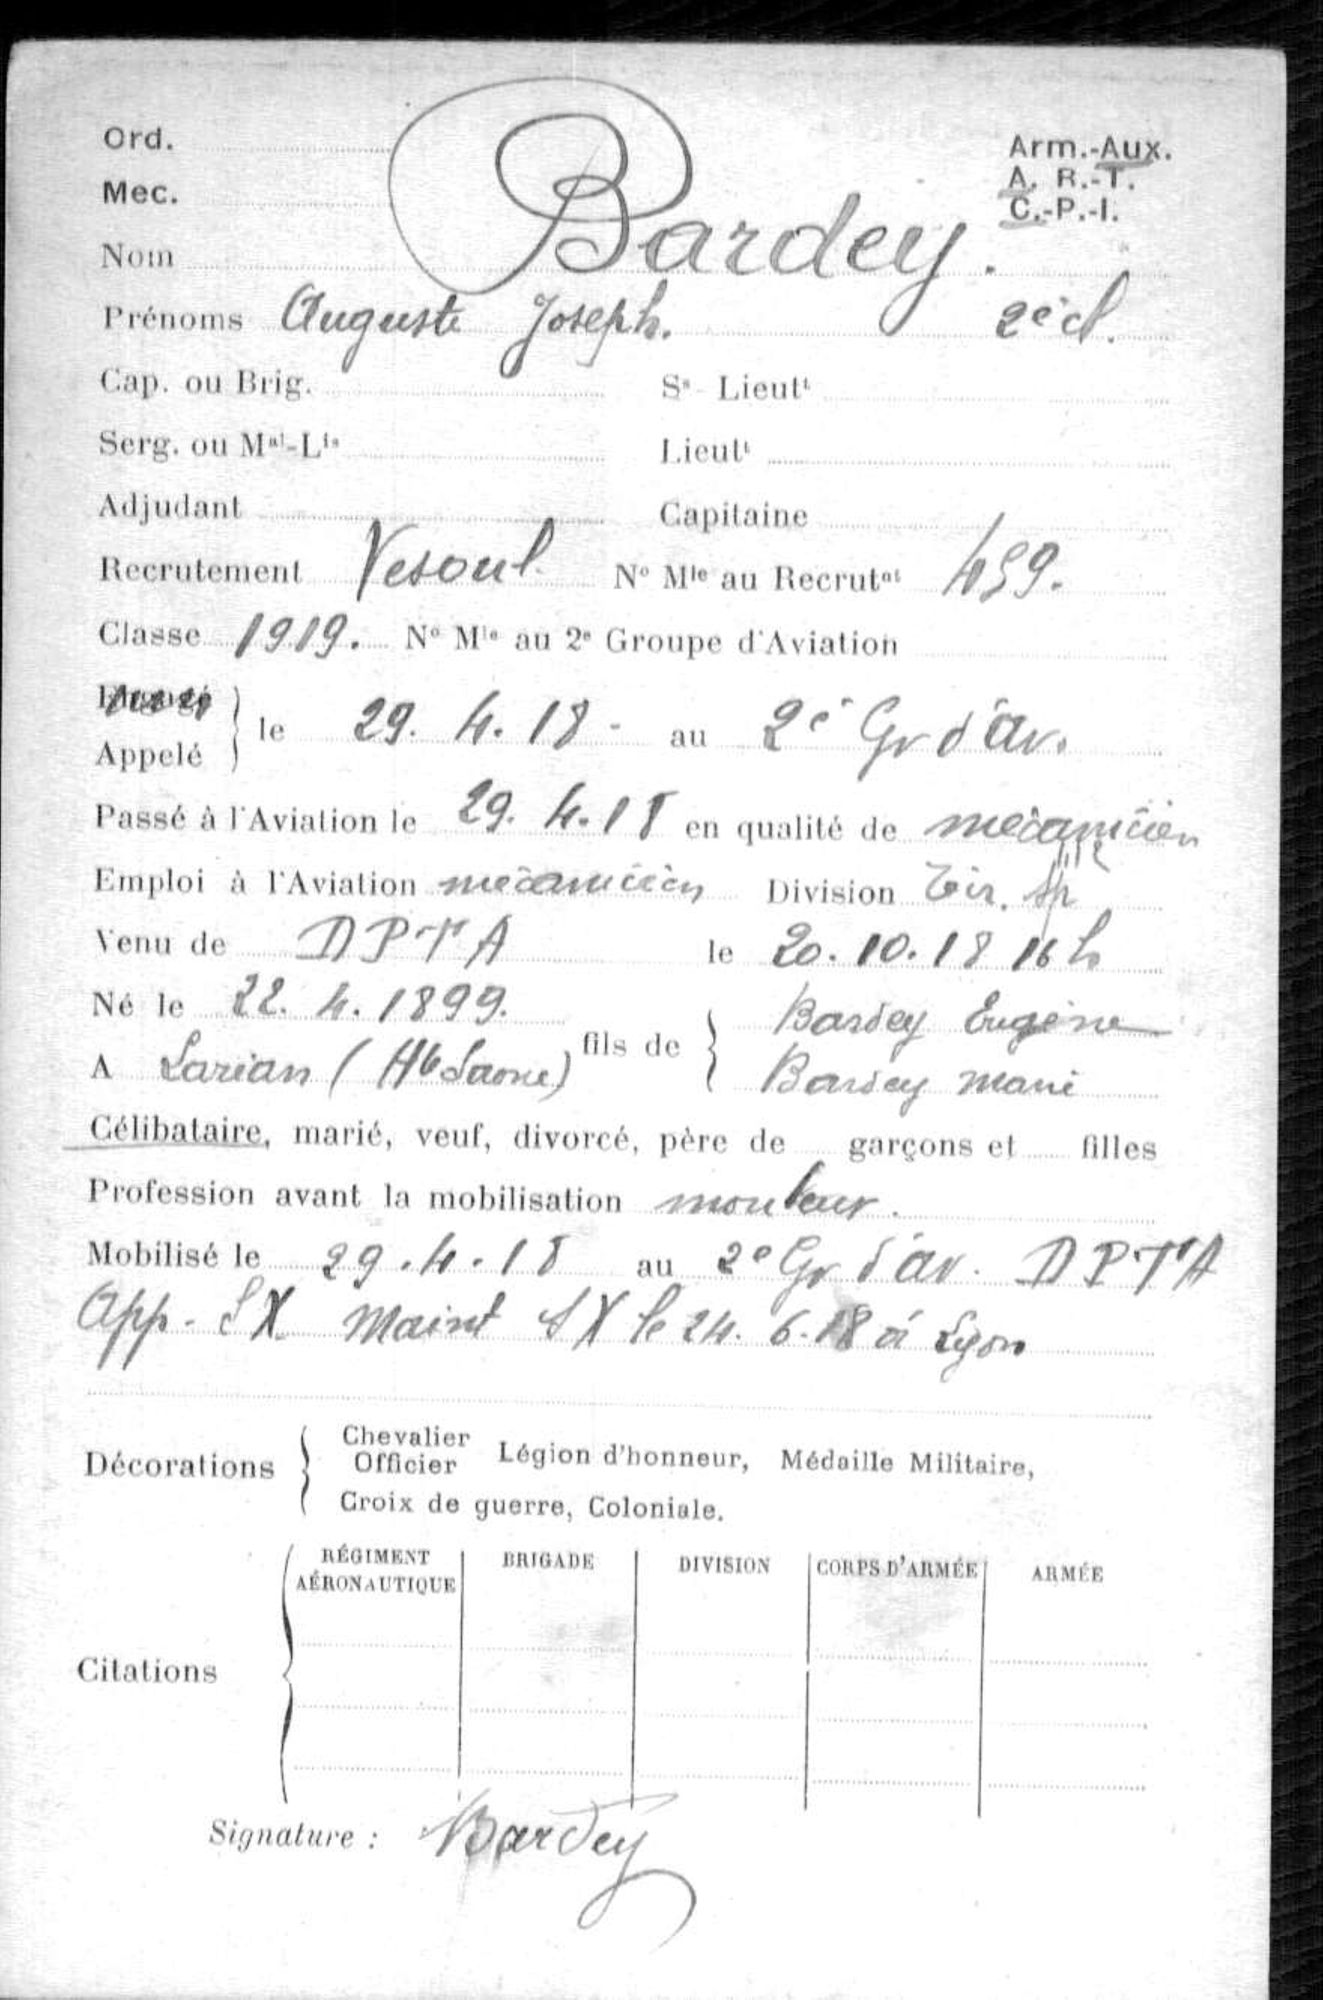 Ord.
Arm.-Aux.
Mec.
A. R.-T.
C.-P.-I.
Nom Bardey.
Prénoms Auguste Joseph. 2e cl.
Cap. ou Brig. Ss- Lieutt
Serg. ou Mal-Lis Lieutt
Adjudant Capitaine
Recrutement Vesoul No Mle au Recrutnt 459.
Classe 1919. No Mle au 2e Groupe d'Aviation
Appelé le 29. 4. 18 - au 2e Gr d'av.
Passé à l'Aviation le 29. 4. 18 en qualité de mécanicien
Emploi à l'Aviation mécanicien Division
Venu de DPTA le 20. 10. 18 16 h
Né le 22. 4. 1899.
A Larian (Hte Saone) fils de Bardey Eugène
Bardey Marie
Célibataire, marié, veuf, divorcé, père de garçons et filles
Profession avant la mobilisation monteur.
Mobilisé le 29. 4. 18 au 2e Gr d'av. DPTA
App. SX Maint SX le 24. 6. 18 à Lyon
Décorations Chevalier Officier Légion d'honneur, Médaille Militaire,
Croix de guerre, Coloniale.
RÉGIMENT AÉRONAUTIQUE BRIGADE DIVISION CORPS D'ARMÉE ARMÉE
Citations
Signature : Bardey